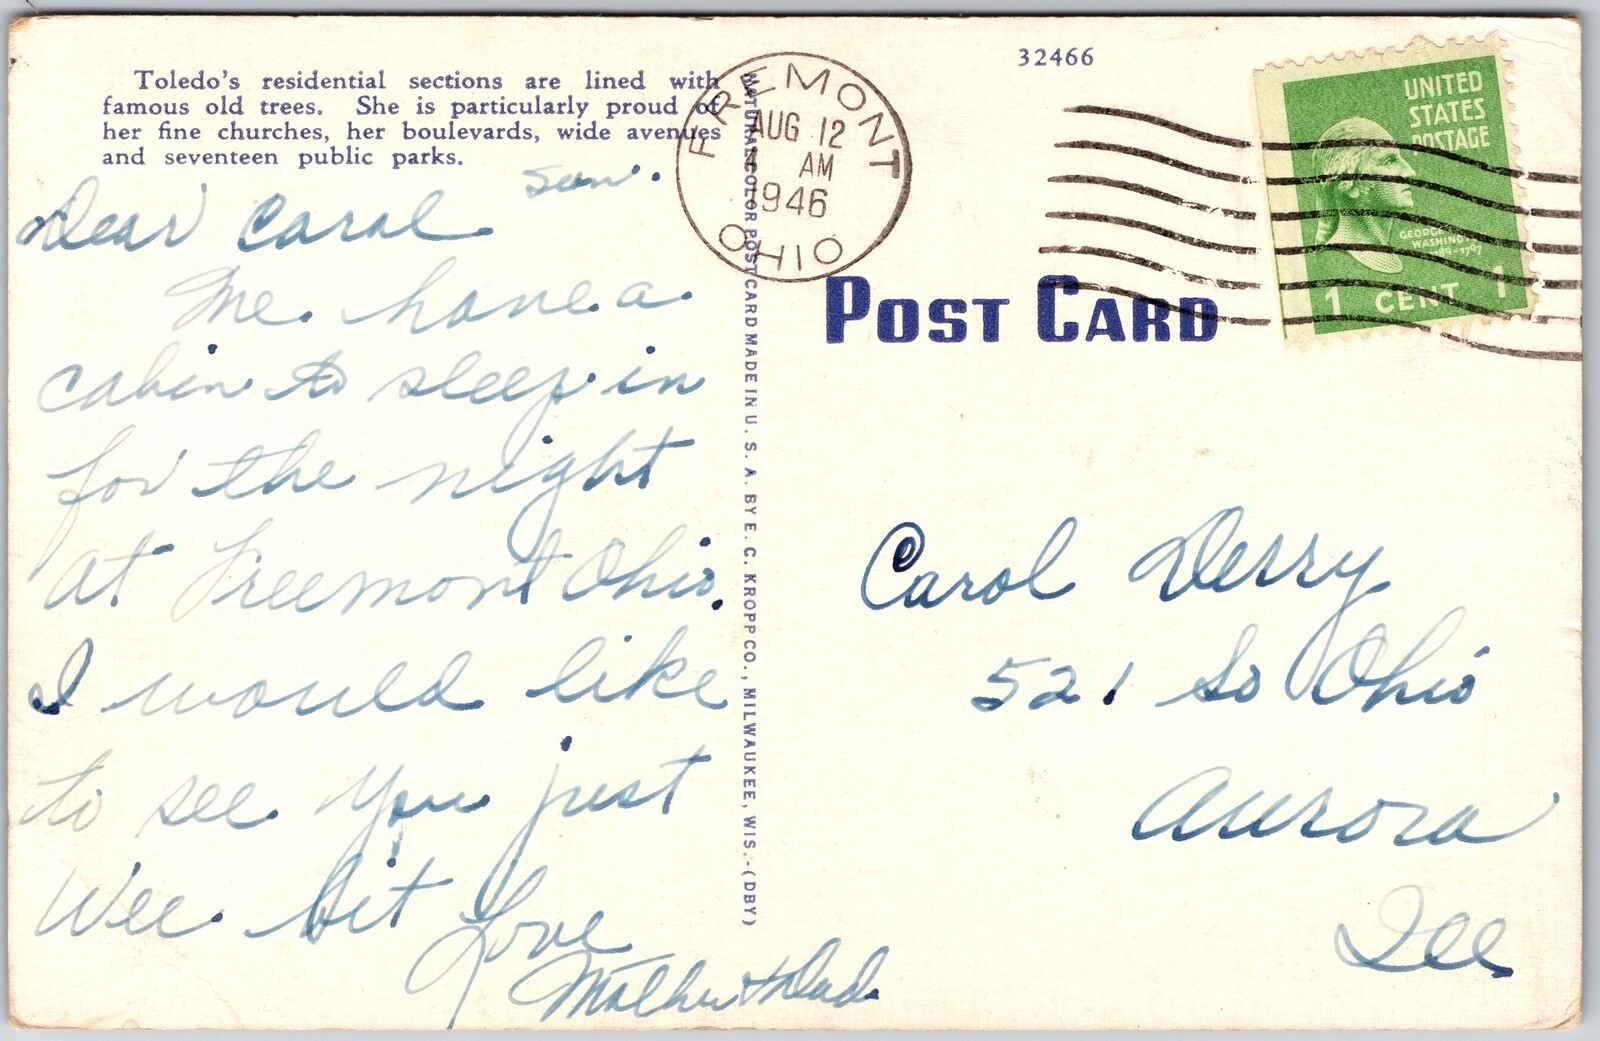 Toledo's residential sections are lined with
famous old trees. She is particularly proud of
her fine churches, her boulevards, wide avenues
and seventeen public parks.
Sun.
Dear Carol
We have a
cabin to sleep in
for the night
at Freemont Ohio.
I would like
to see you just
Wee bit
Love
Mother & Dad.
NATURAL COLOR POST CARD MADE IN U. S. A. BY E. C. KROPP CO., MILWAUKEE, WIS.-(DBY)
FREMONT
AUG 12
AM
1946
OHIO
32466
UNITED
STATES
POSTAGE
GEORGE
WASHINGTON
1797
1 CENT 1
POST CARD
Carol Derry
521 So Ohio
Aurora
Ill